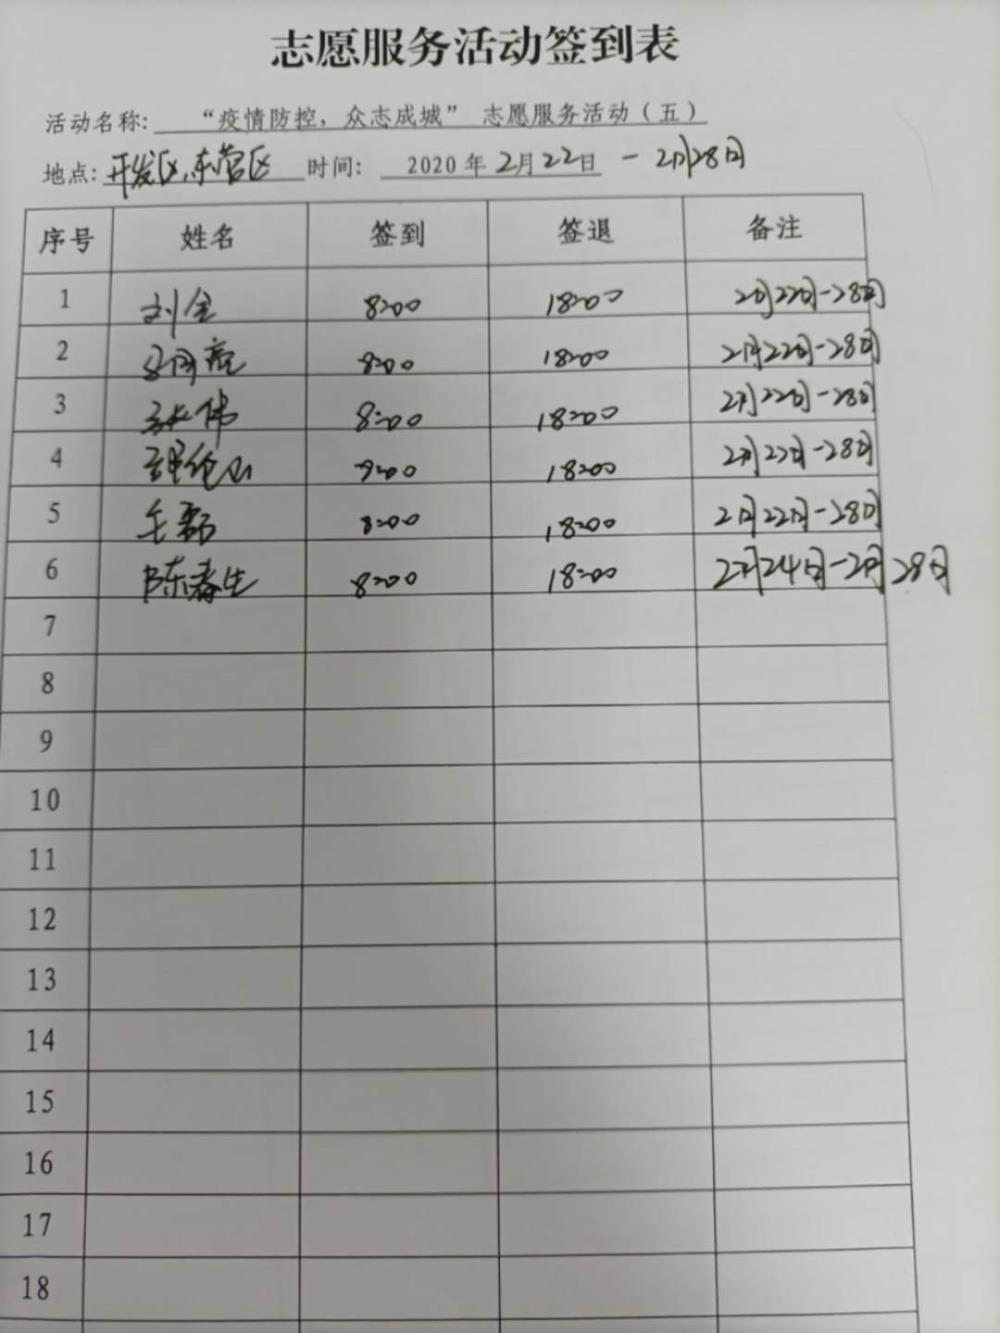 志愿服务活动签到表
活动名称: “疫情防控，众志成城” 志愿服务活动（五）
地点: 开发区、东营区 时间: 2020年2月22日 - 2月28日
序号 姓名 签到 签退 备注
1 刘全 8:00 18:00 2月22日-28日
2 8:00 18:00 2月22日-28日
3 伟 8:00 18:00 2月22日-28日
4 18:00 2月22日-28日
5 王磊 8:00 18:00 2月22日-28日
6 陈春生 8:00 18:00 2月24日-2月28日
7
8
9
10
11
12
13
14
15
16
17
18